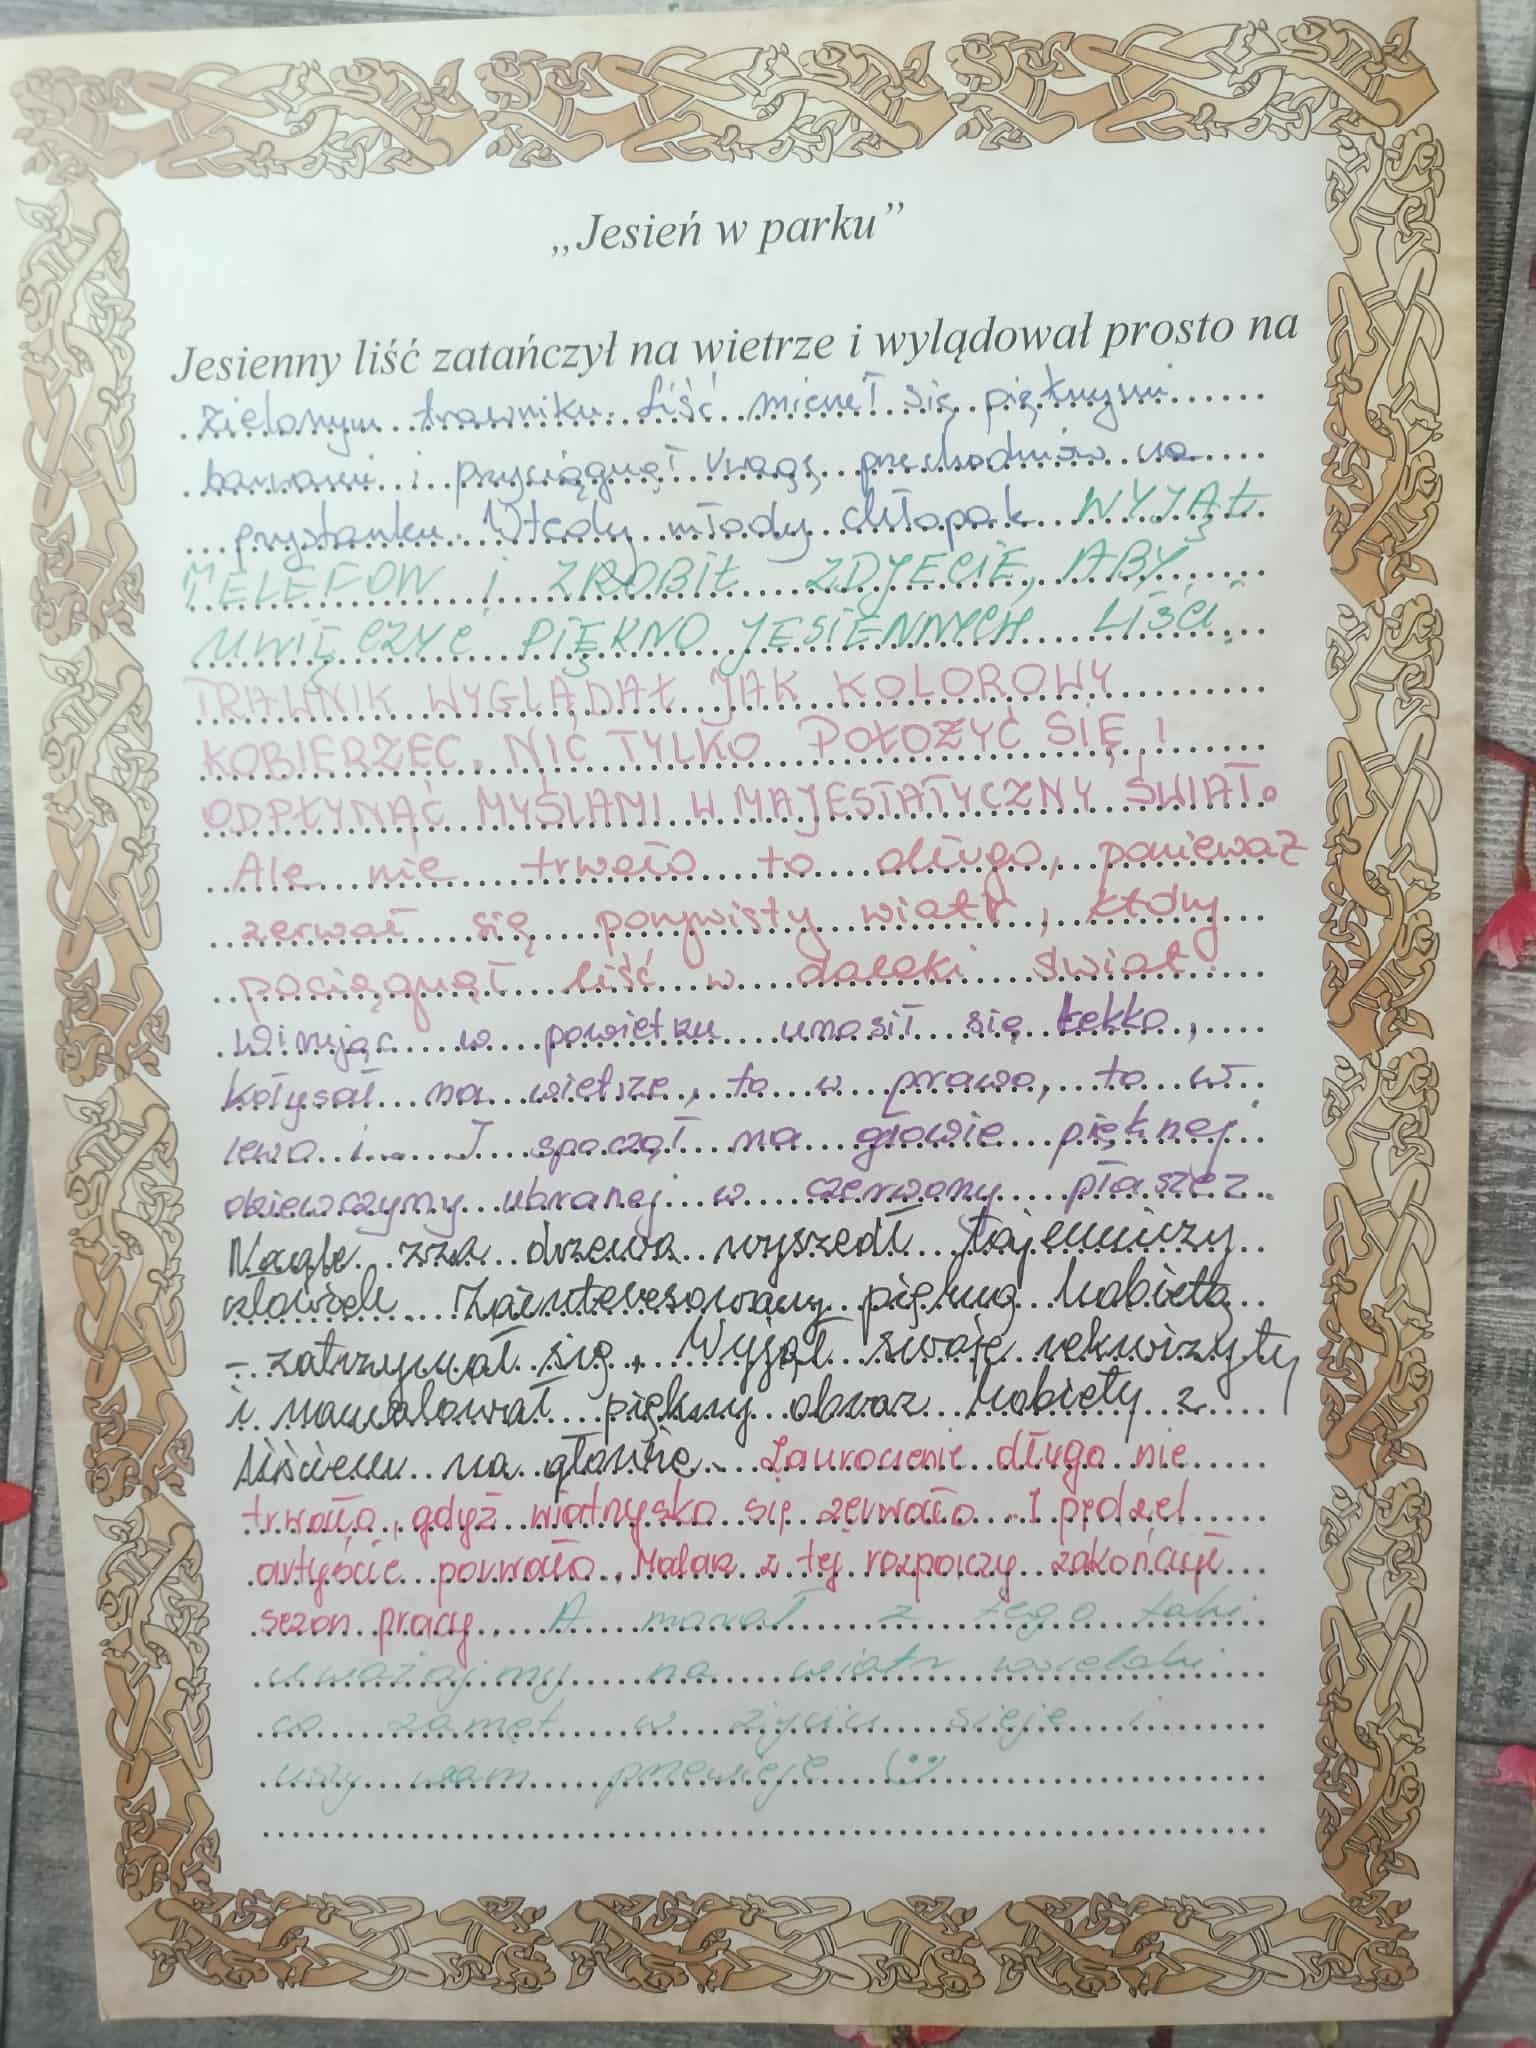 „Jesień w parku”
Jesienny liść zatańczył na wietrze i wylądował prosto na
zielonym trawniku. Liść mienił się pięknymi
barwami i przyciągnął uwagę przechodniów na
przystanku. Wtedy młody chłopak WYJĄŁ
TELEFON i ZROBIŁ ZDJĘCIE, ABY
UWIĘCZYĆ PIĘKNO JESIENNYCH LIŚCI.
TRAWNIK WYGLĄDAŁ JAK KOLOROWY
KOBIERZEC. NIC TYLKO POŁOŻYĆ SIĘ I
ODPŁYNĄĆ MYŚLAMI W MAJESTATYCZNY ŚWIAT.
Ale nie trwało to długo, ponieważ
zerwał się porywisty wiatr, który
pociągnął liść w daleki świat.
Wirując w powietrzu unosił się lekko,
kołysał na wietrze, to w prawo, to w
lewo i... I spoczął na głowie pięknej
dziewczyny ubranej w czerwony płaszcz.
Nagle zza drzewa wyszedł tajemniczy
człowiek. Zainteresowany piękną kobietą
- zatrzymał się. Wyjął swoje rekwizyty
i namalował piękny obraz kobiety z
liściem na głowie. Zauroczenie długo nie
trwało, gdyż wiatrzysko się zerwało. I pędzel
artyście porwało. Malarz z tej rozpaczy zakończył
sezon pracy. A morał z tego taki
uważajmy na wiatr wszelaki
co zamęt w życiu sieje i
uszy wam przewieje